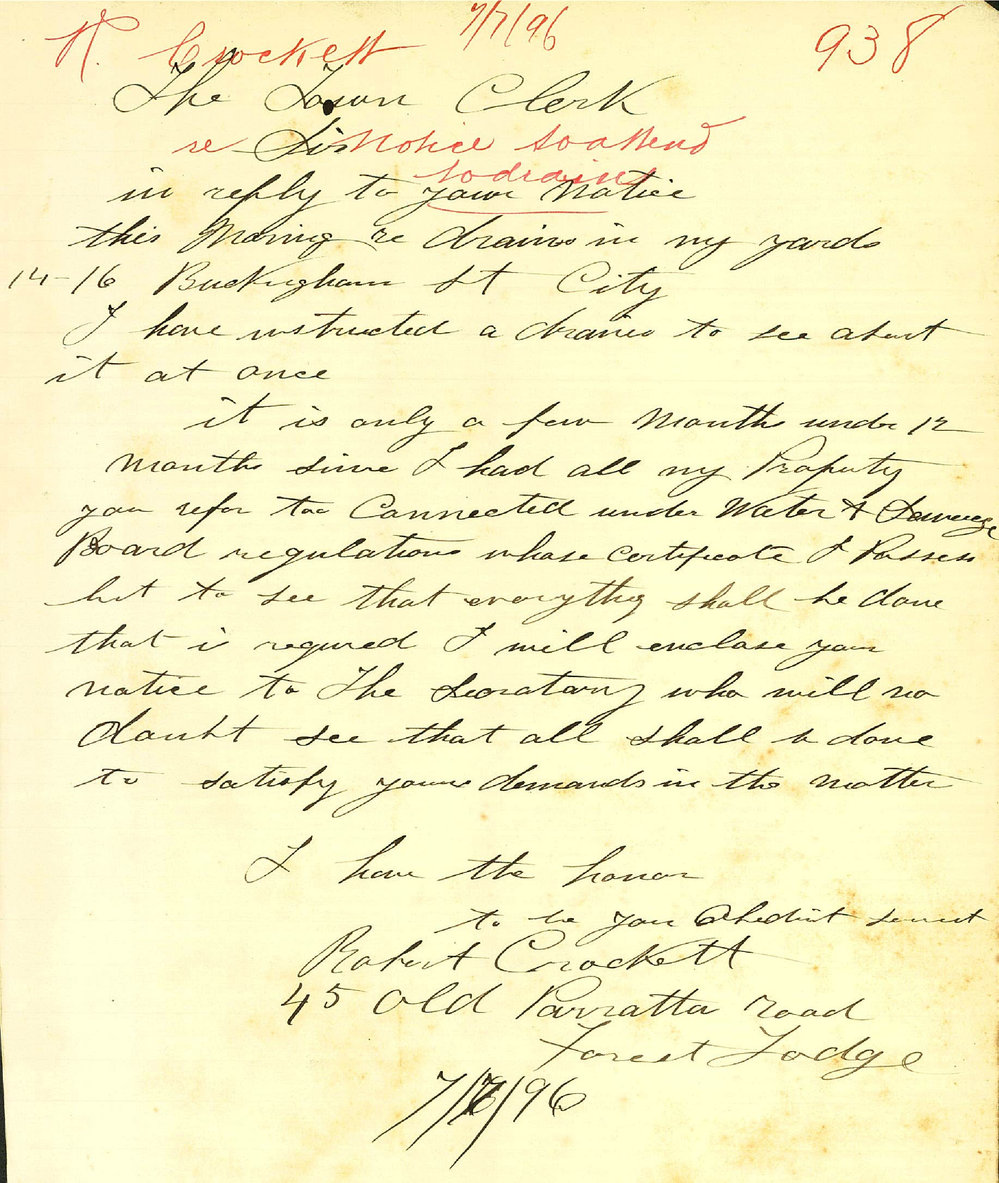 R. Crockett 7/7/96 938
The Town Clerk
re Notice to attend
to drains
Sir
in reply to your Notice
this Moring re drains in my yards
14-16 Buckingham St City
I have instructed a drainer to see about
it at once
it is only a few Months under 12
Months since I had all my Property
you refer too Connected under Water & Sewerage
Board regulations whose certificate I Possess
but to see that everything shall be done
that is required I will enclose your
notice to The Secretary who will no
doubt see that all shall be done
to satisfy your demands in the matter
I have the honor
to be your Obedient servant
Robert Crockett
45 Old Parratta road
Forest Lodge
7/7/96